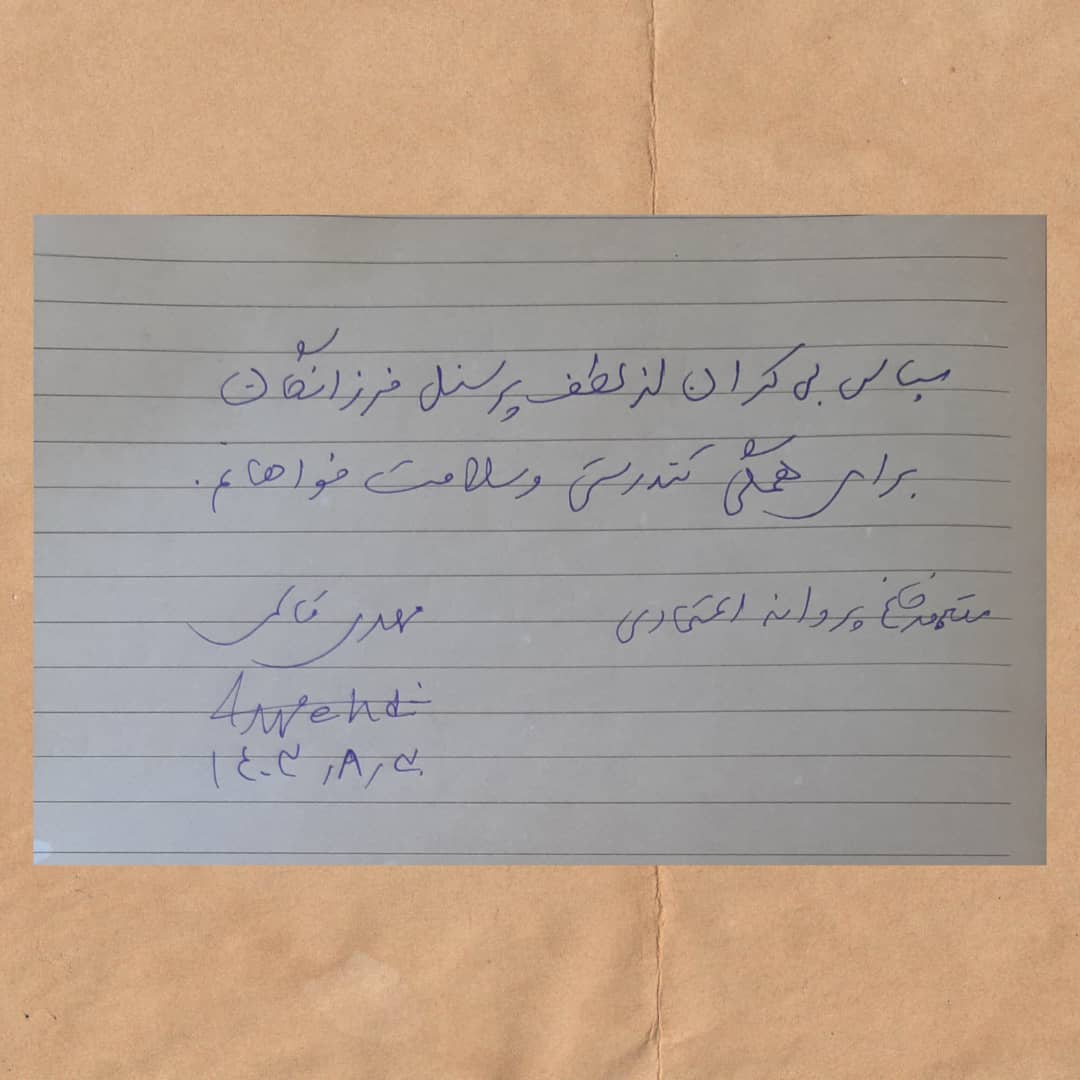 سپاس بی کران از لطف پرسنل فرزانگان
برای همگی تندرستی و سلامت خواهانم.
پروانه اعتمادی
مهدی
Mehdi
۱۴۰۳,۸,۴